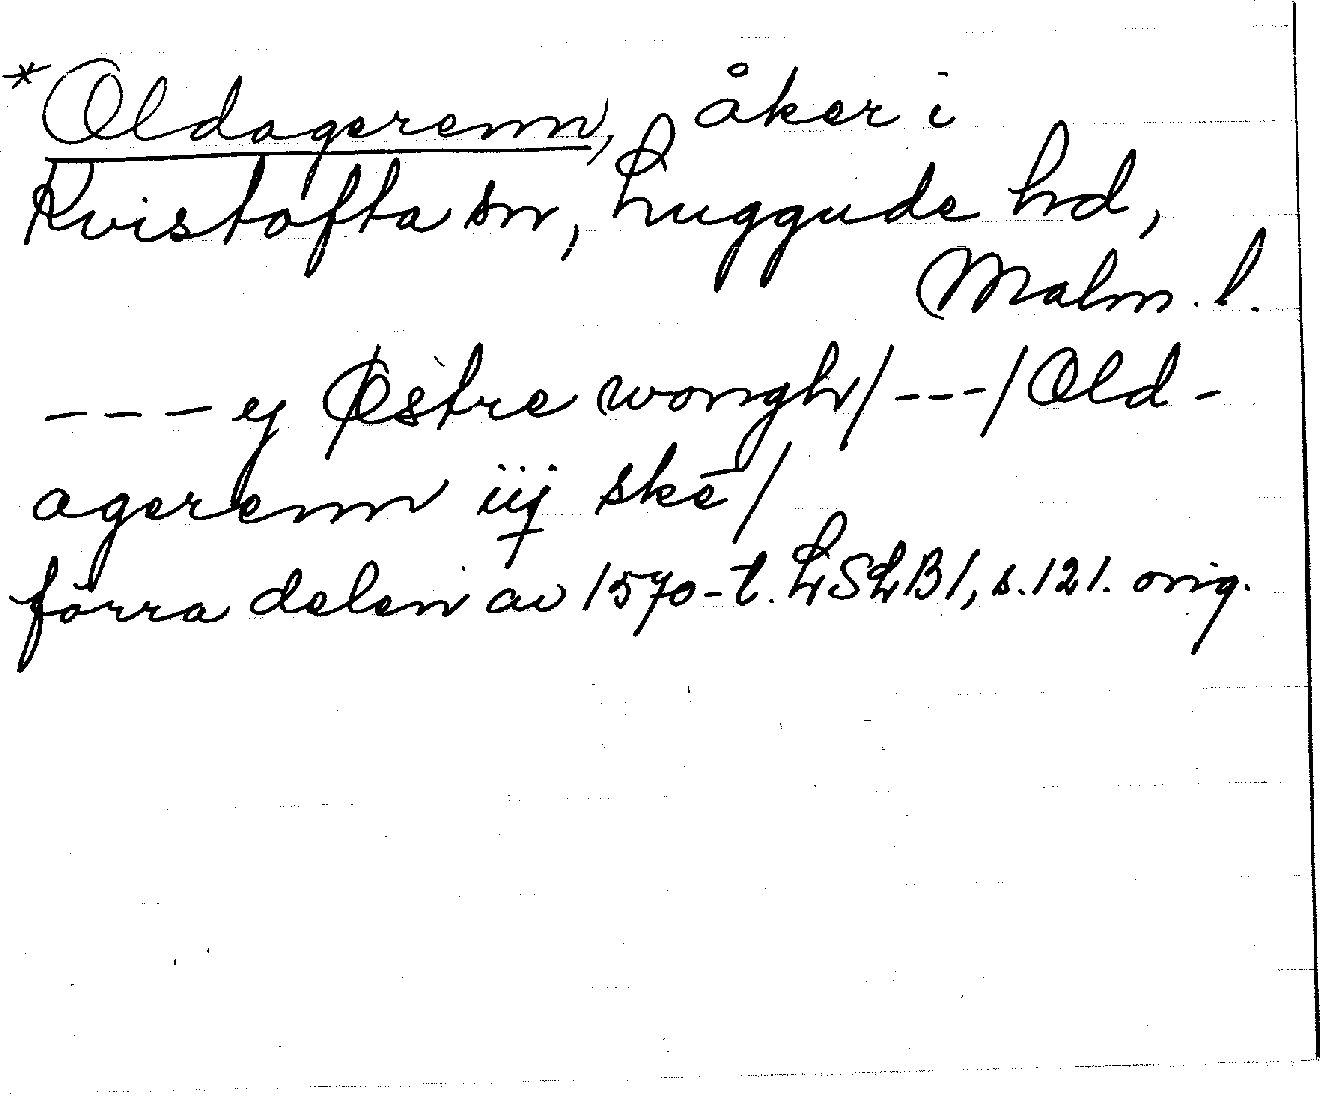 *Oldagerenn, åker i
Kvistofta sn, Luggude hd,
Malm. l.
--- ej Østre wongh/---/Old-
agerenn iij ske/
förra delen av 1570-t. LSLB1, s.121. orig.